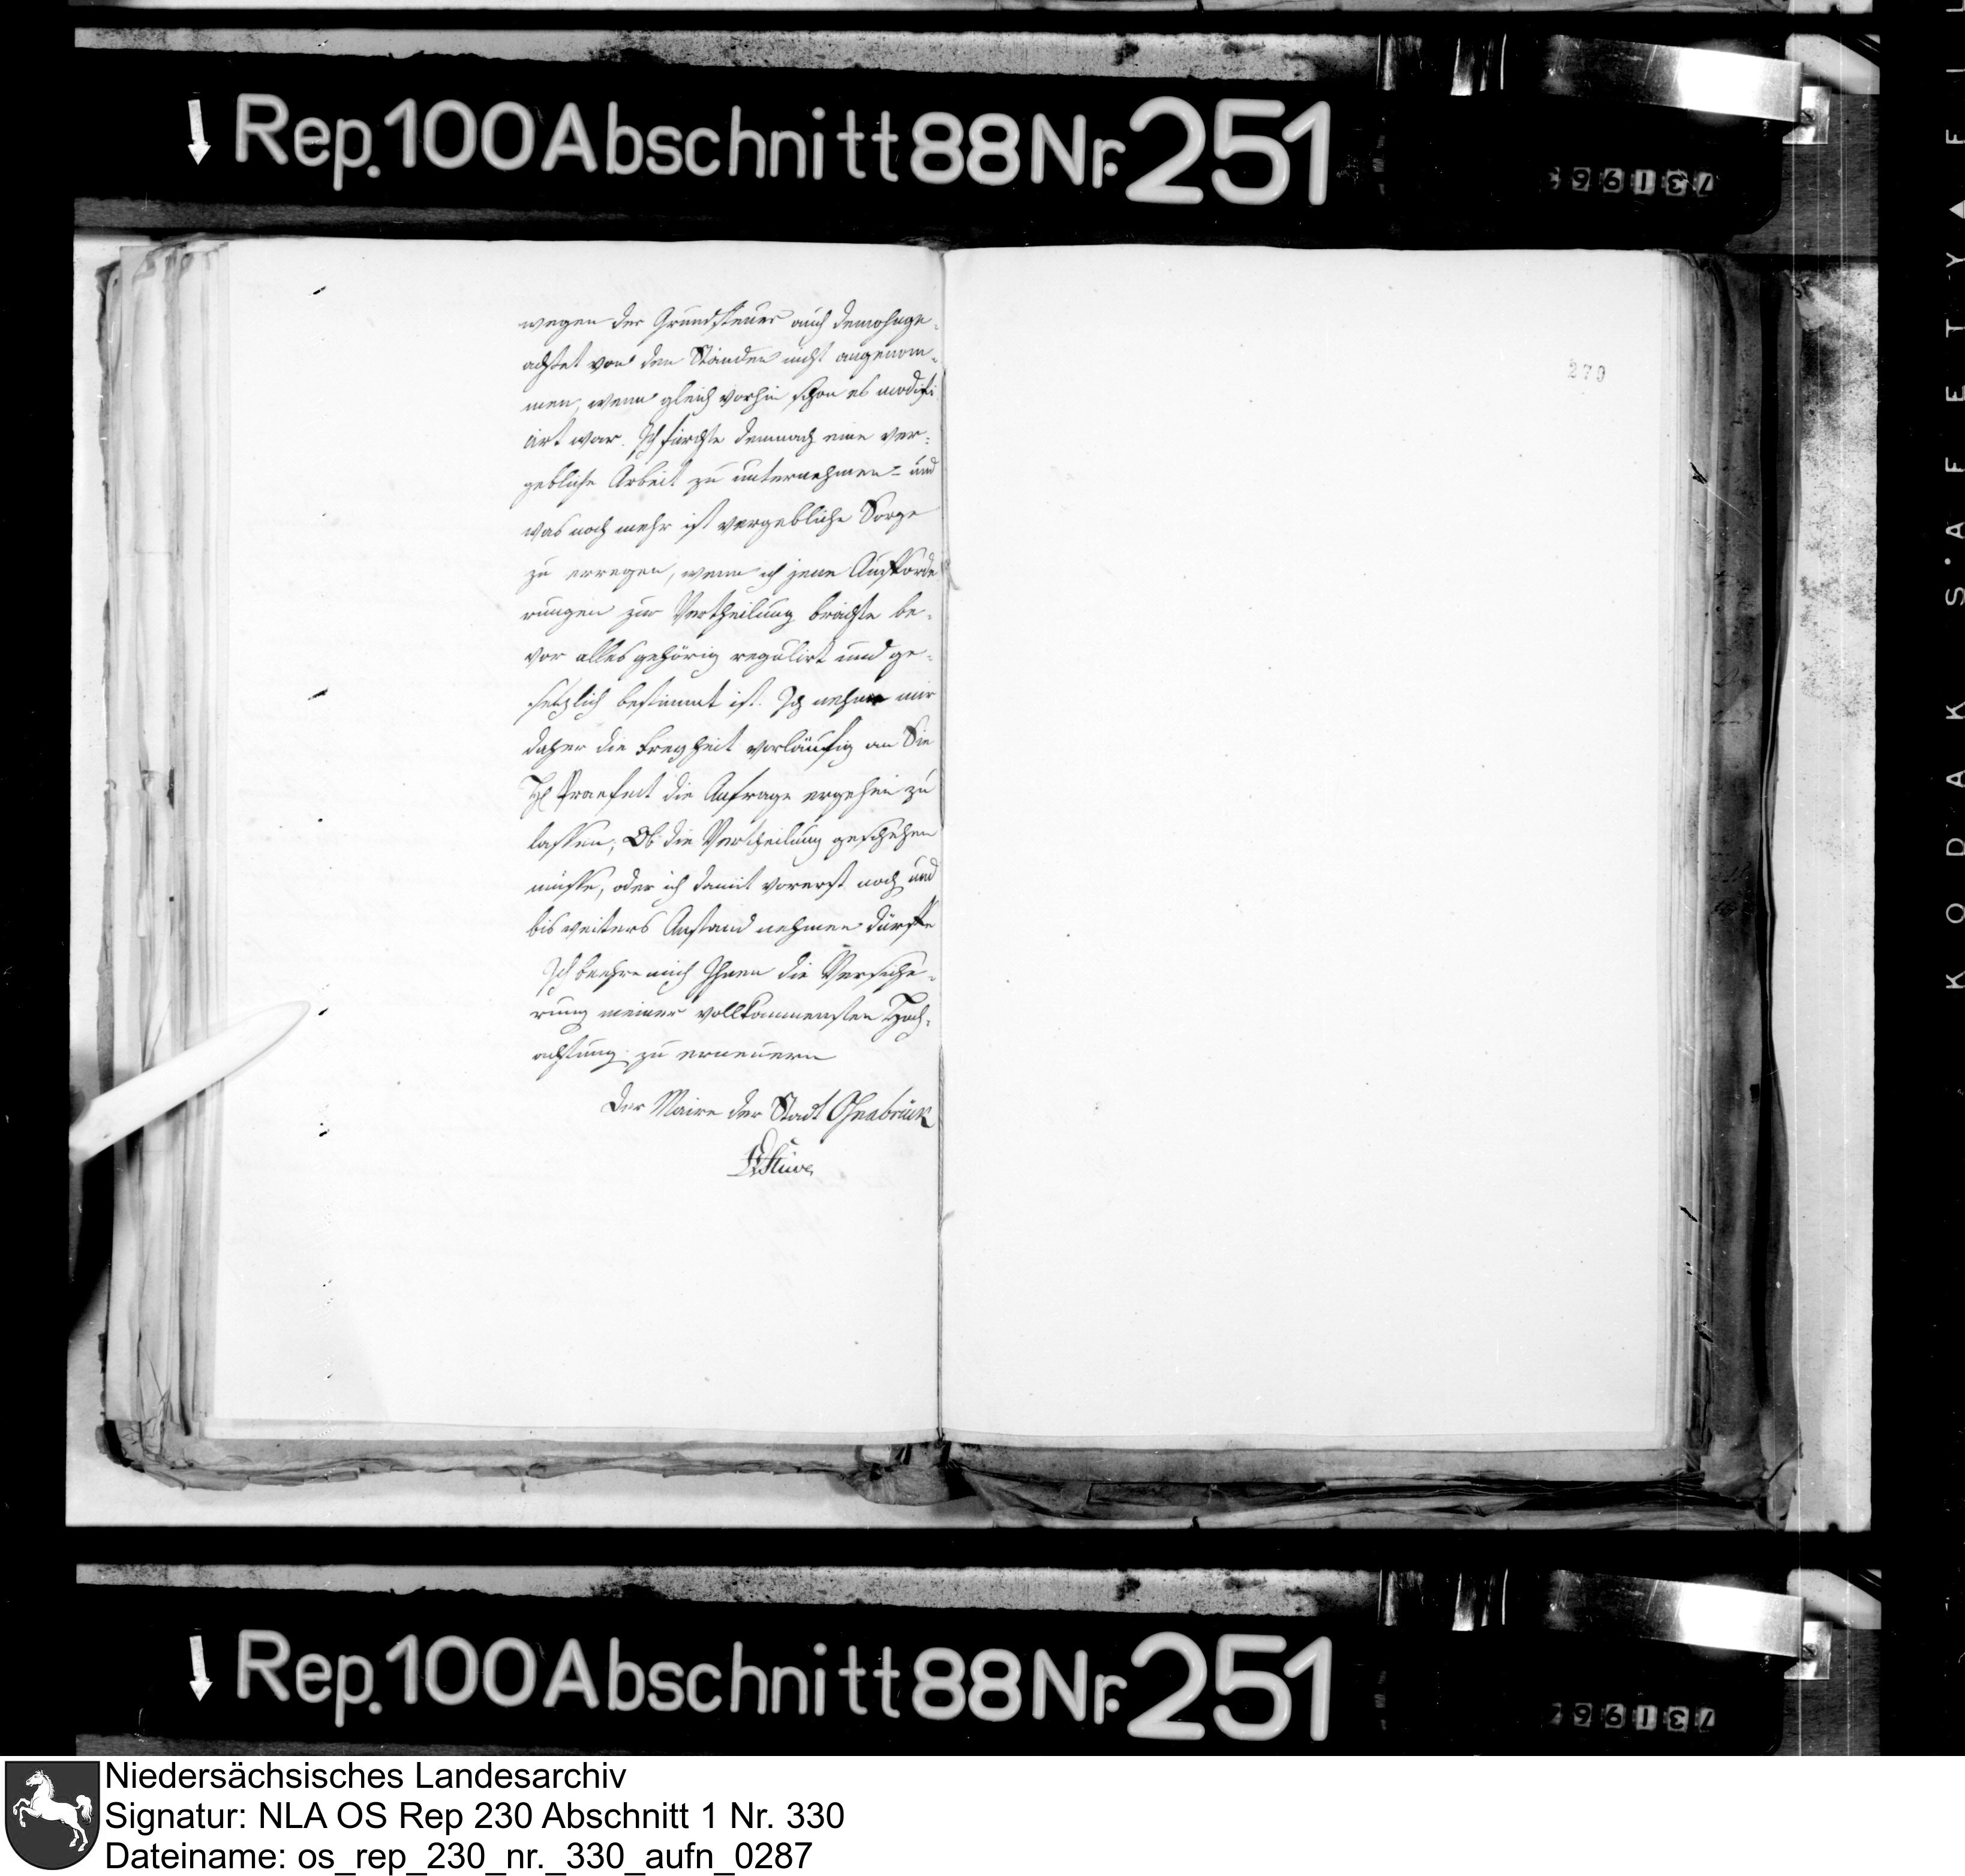 Rep. 100 Abschnitt 88 Nr. 251
wegen der Grundsteuer auch demohnge-
achtet von den Ständen nicht angenom-
men, wenn gleich vorhin schon es modifi
cirt war. Ich fürchte demnach eine ver-
gebliche Arbeit zu unternehmen - und
was noch mehr ist vergebliche Sorge
zu erregen, wenn ich jene Aufforde
rungen zur Vertheilung brächte be-
vor alles gehörig regulirt und ge-
setzlich bestimmt ist. Ich nehme mir
daher die Freyheit vorläufig an Sie
H Praefect die Anfrage ergehen zu
lassen, Ob die Vertheilung geschehen
müsse, oder ich damit vorerst noch und
bis weiters Anstand nehmen dürfte
Ich beehre mich Ihnen die Versiche-
rung meiner vollkommensten Hoch-
achtung zu erneuern
Der Maire der Stadt Osnabrück
Stüve
279
KODAK S·A·F·E·T·Y
Rep. 100 Abschnitt 88 Nr. 251
Niedersächsisches Landesarchiv
Signatur: NLA OS Rep 230 Abschnitt 1 Nr. 330
Dateiname: os_rep_230_nr._330_aufn_0287